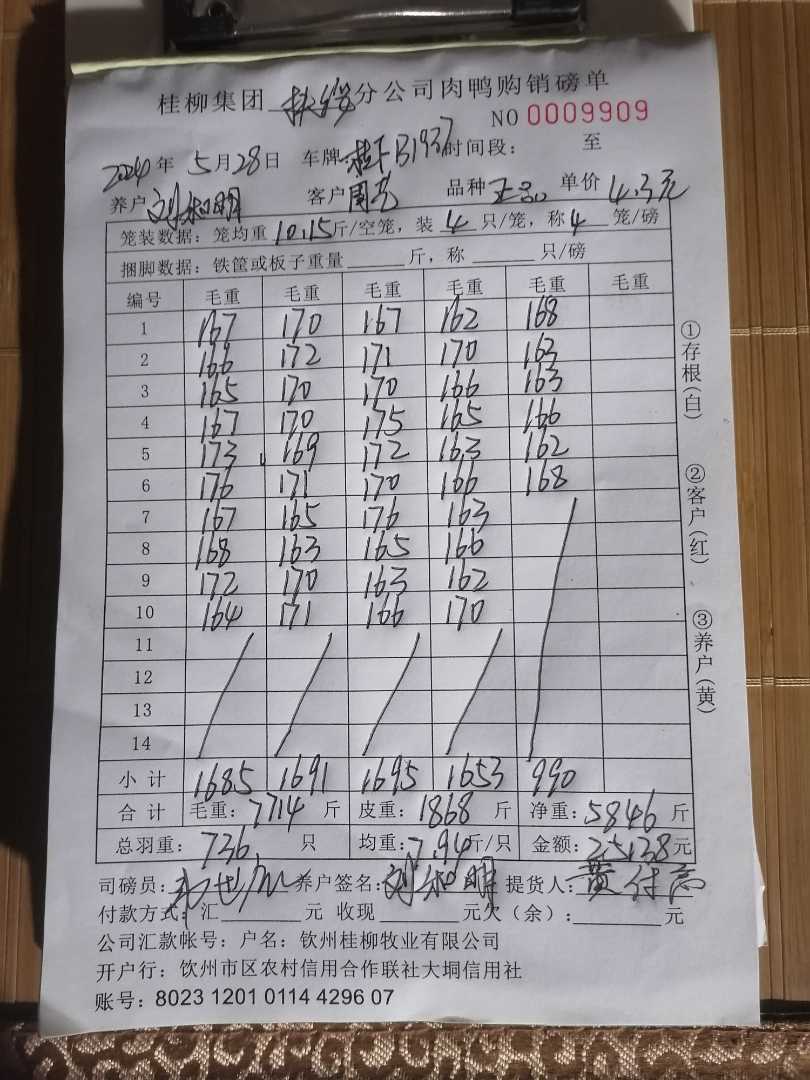 桂柳集团 分公司肉鸭购销磅单
NO 0009909
2024年 5月28日 车牌 桂 B1937 时间段： 至
养户 刘和明 客户 周亮 品种 正品 单价 4.3元
笼装数据：笼均重 10.15 斤/空笼，装 4 只/笼，称 4 笼/磅
捆脚数据：铁筐或板子重量______斤，称______只/磅
编号 毛重 毛重 毛重 毛重 毛重 毛重
1 167 170 167 162 168
2 166 172 171 170 163
3 165 170 170 166 163
4 167 170 175 165 166
5 173 169 172 163 162
6 176 171 170 166 168
7 167 165 176 163
8 168 163 165 166
9 172 170 163 162
10 164 171 166 170
11
12
13
14
小计 1685 1691 1695 1653 990
合计 毛重：7714 斤 皮重：1868 斤 净重：5846 斤
总羽重：736 只 均重：7.94斤/只 金额：25138元
司磅员： 养户签名：刘和明 提货人：黄付高
付款方式：汇______元 收现______元欠（余）：______元
公司汇款帐号：户名：钦州桂柳牧业有限公司
开户行：饮州市区农村信用合作联社大垌信用社
账号：8023 1201 0114 4296 07
①存根（白）
②客户（红）
③养户（黄）